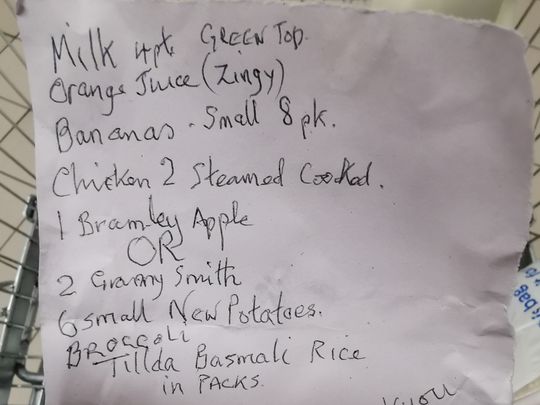 Milk 4pt. GREEN TOP.
Orange Juice (Zingy)
Bananas - Small 8 pk.
Chicken 2 Steamed Cooked.
1 Bramley Apple
OR
2 Granny Smith
6 small New Potatoes.
BROCCOLI
Tillda Basmali Rice
in PACKS.
you